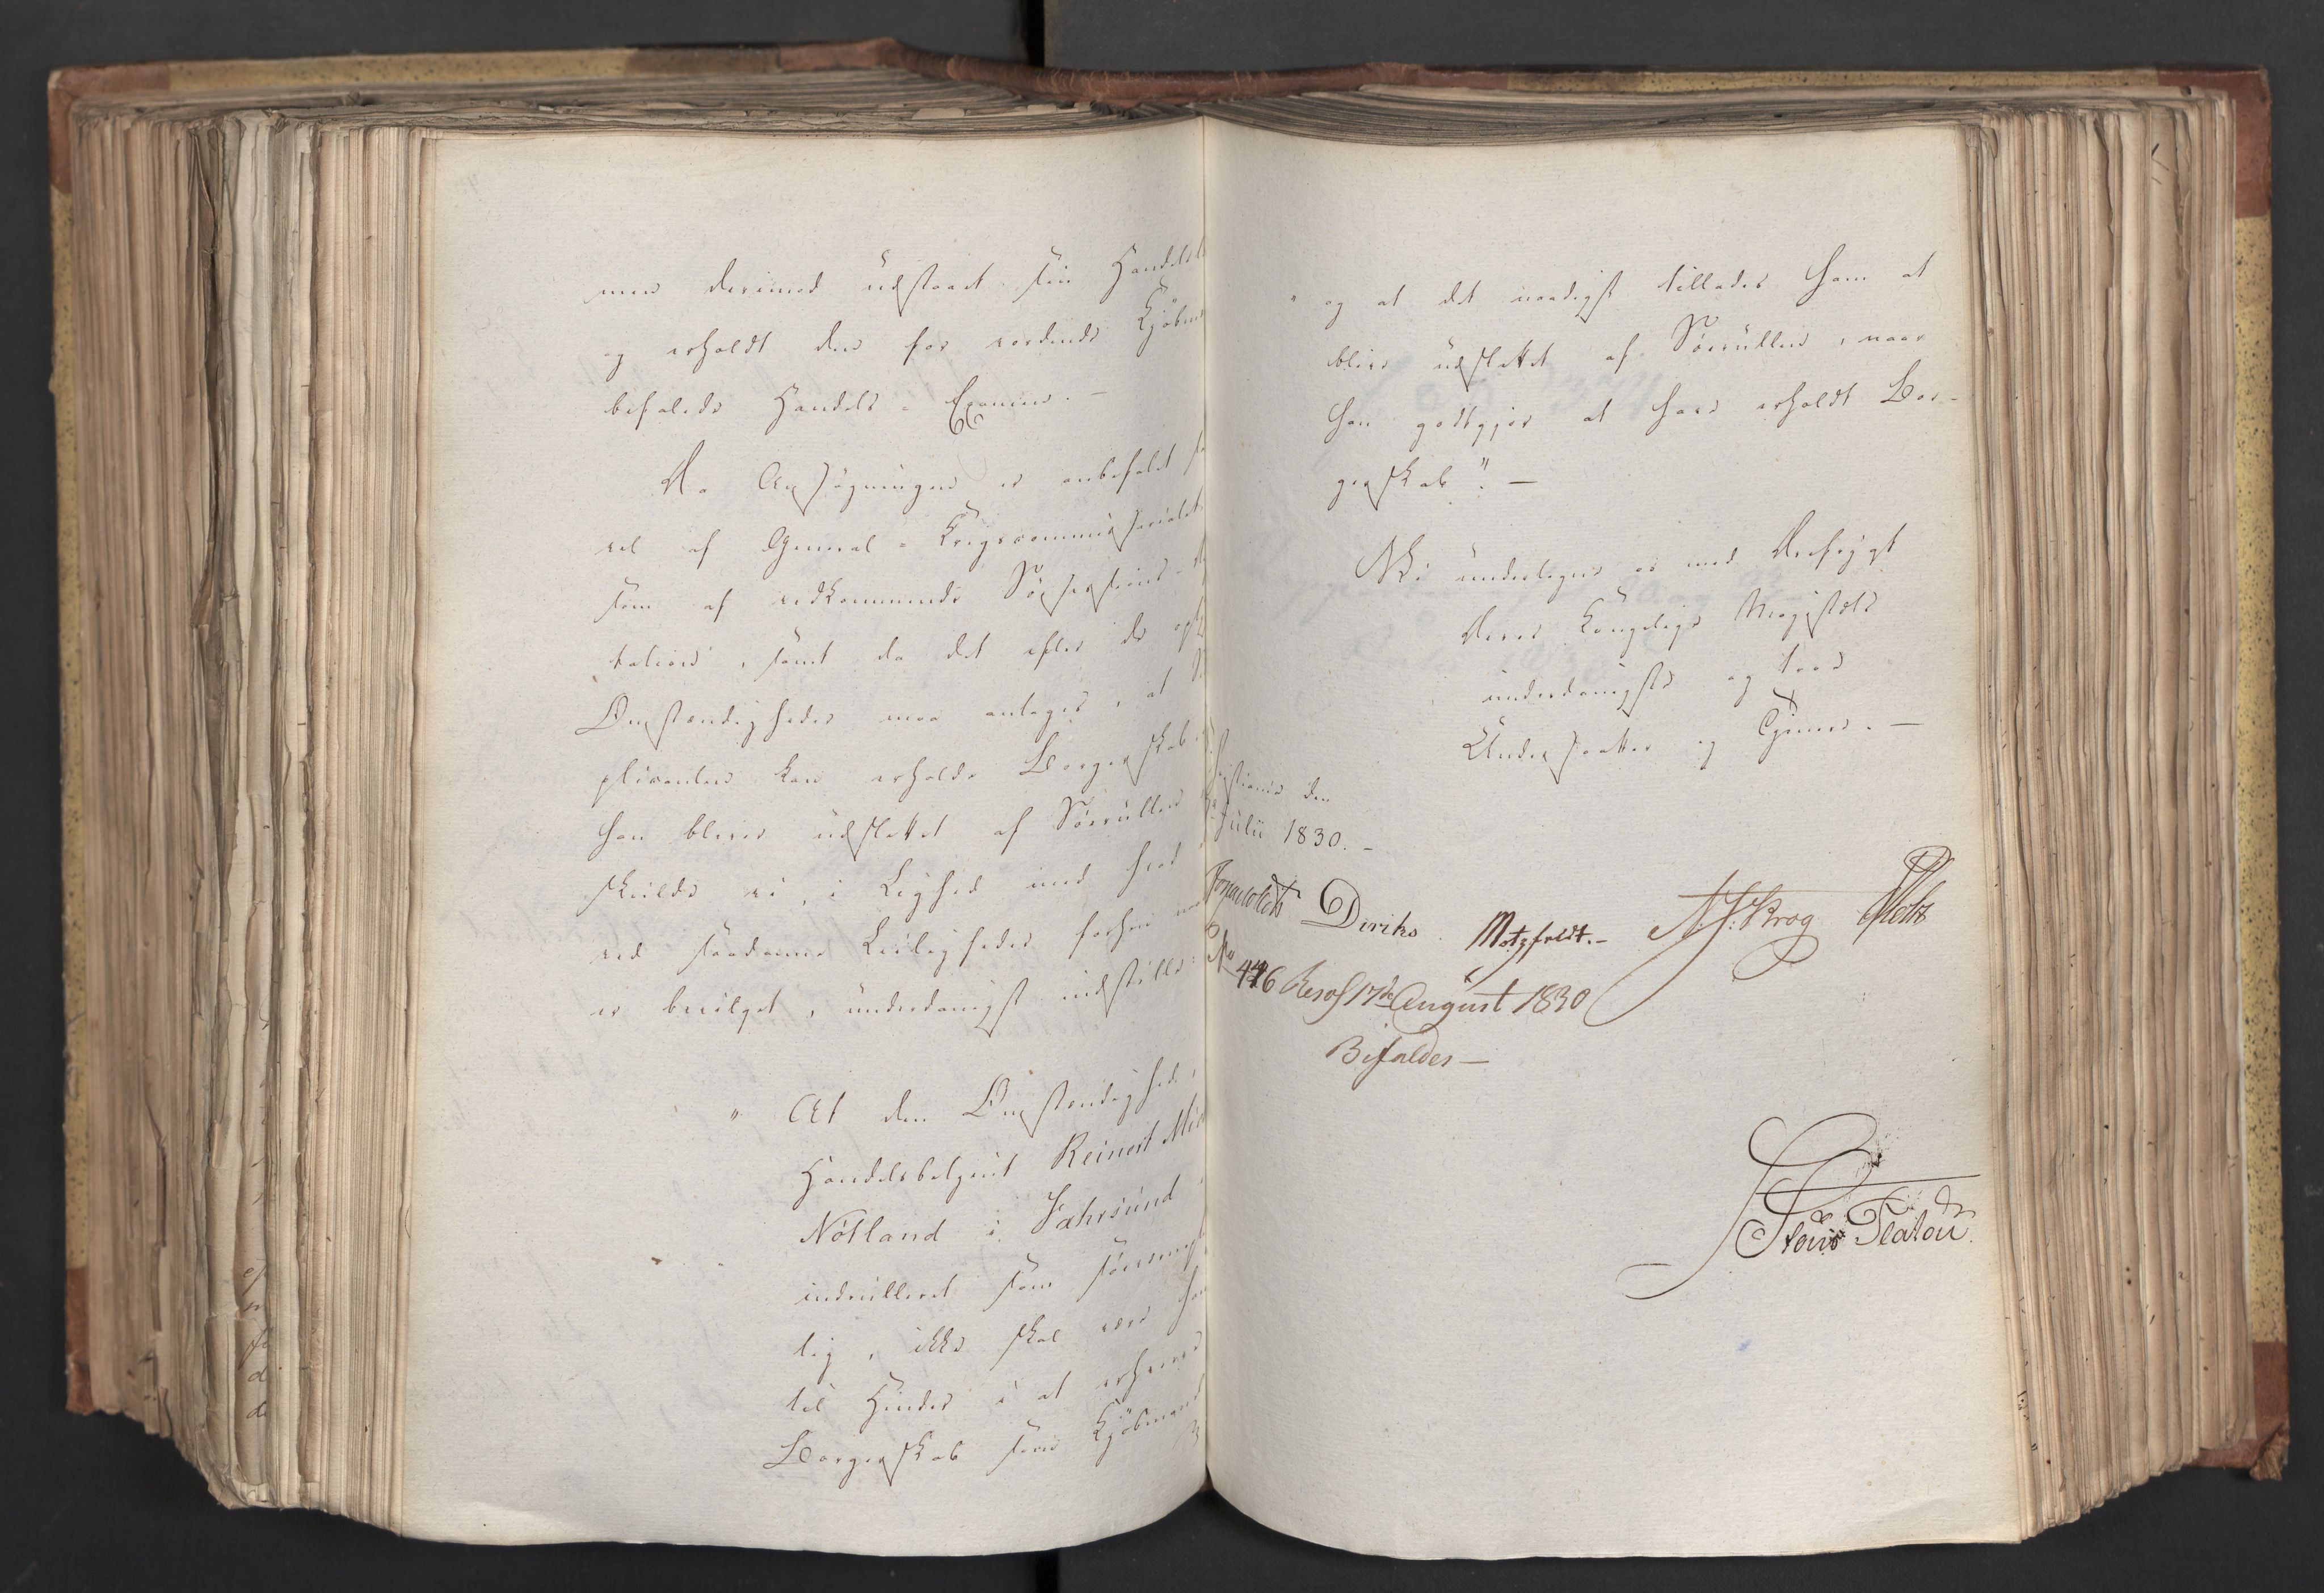 men derimod udstaaet sin Handels
og erholdt den for vordende Kjöbm
befalede Handels-Examen. —
Da Ansögningen er anbefalet så
vel af General-Krigscommissariatet
som af vedkommende Sösessions-
tation, samt da det efter de opl
Omstændigheder maa antages, at
plicanten kan erholde Borgerskab
han bliver udslettet af Sörullen
skulde vi, i Liighed med hvad
ved saadanne Leiligheder forhen
er bevilget, underdanigst indstille:
" At den Omstændighed,
Handelsbetjent Reinert
Nötland i Fahrsund
indrulleret som
lig, ikke skal være ham
til Hinder i at erhverve
Borgerskab som Kjöbmand
" og at det naadigst tillades ham at
blive udslettet af Sörullen, naar
han godtgjör at have erholdt Bor-
gerskab". —
Vi underlegne os med Dybeste
Deres Kongelige Majestæts
underdanigste og troe
Undersaatter og Tjenere. —
Christiania den
Julii 1830. —
Diriks Motzfeldt. — Krog
No 446 Resol 17de August 1830
Bifaldes —
Platou